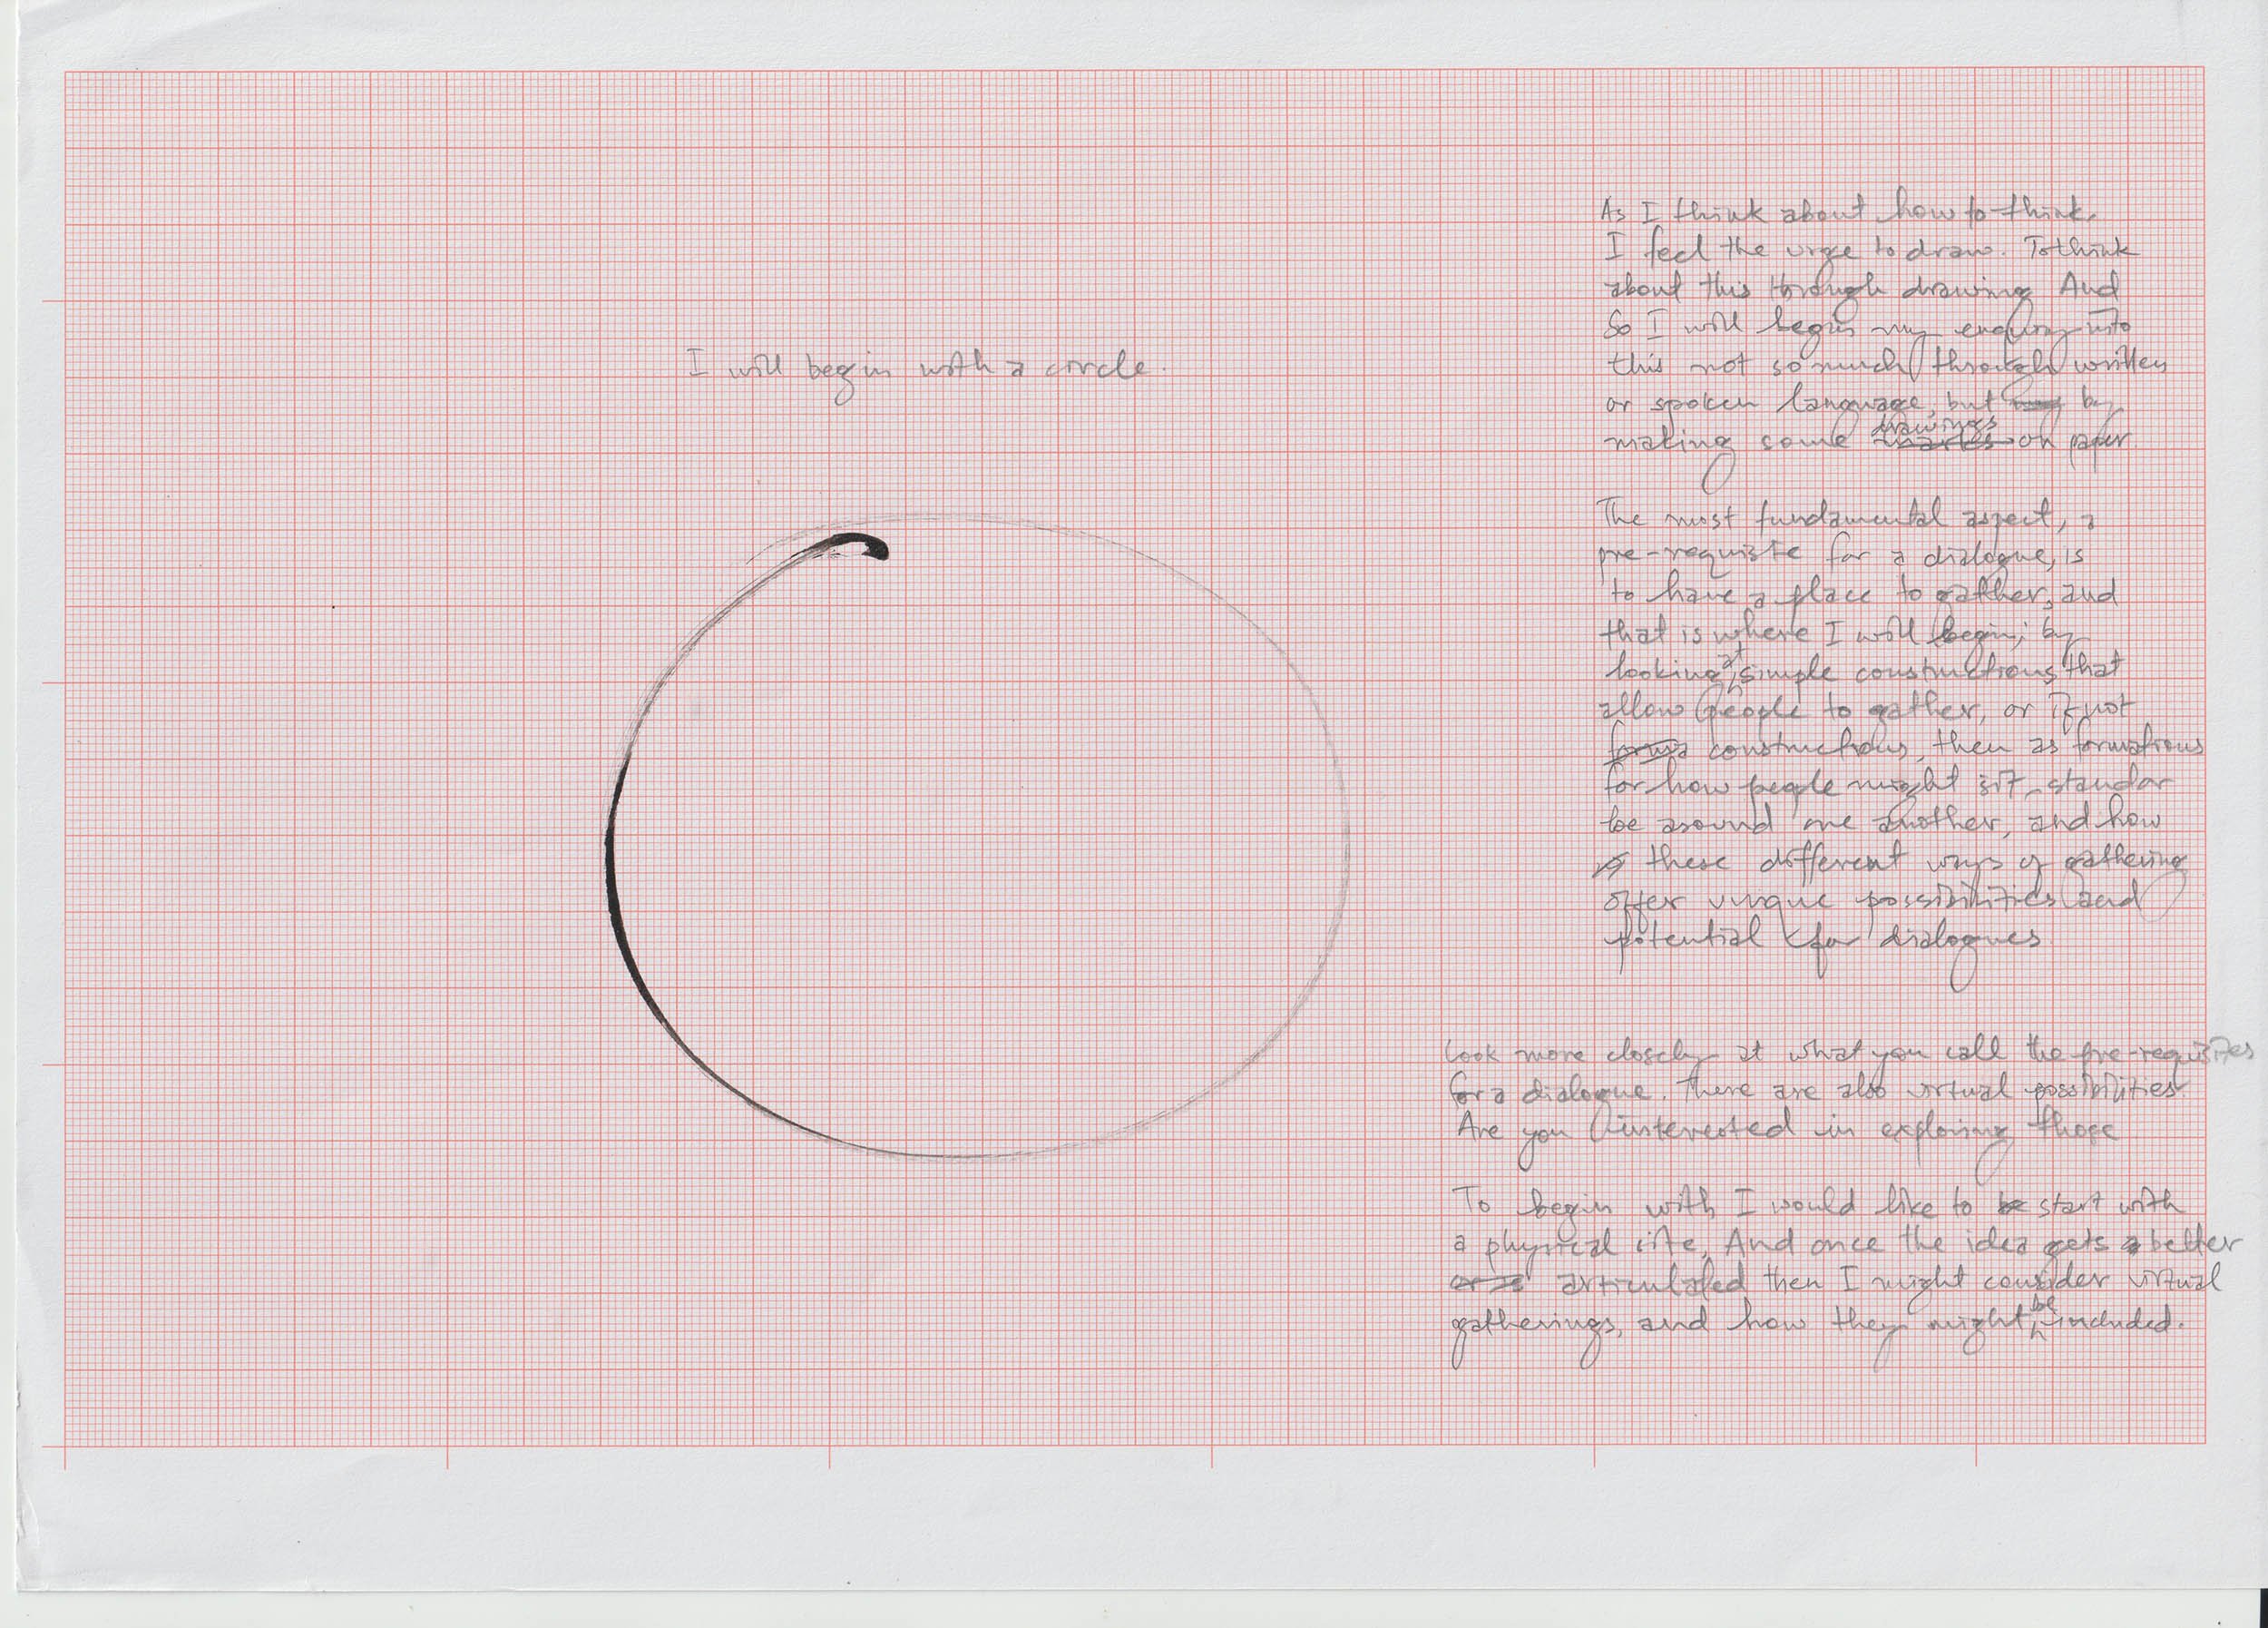 I will begin with a circle.
As I think about how to think,
I feel the urge to draw. To think
about this through drawing. And
So I will begin my enquiry into
this not so much through written
or spoken language, but by
making some drawings on paper.
The most fundamental aspect, a
pre-requiste for a dialogue, is
to have a place to gather, and
that is where I will begin; by
looking at simple constructions that
allow people to gather, or if not
constructions, then as formations
for how people might sit, stand or
be around one another, and how
these different ways of gathering
offer unique possibilities and
potential for dialogues
Look more closely at what you call the pre-requisites
for a dialogue. There are also virtual possibilities.
Are you interested in exploring those
To begin with I would like to start with
a physical site. And once the idea gets better
articulated then I might consider virtual
gatherings, and how they might be included.